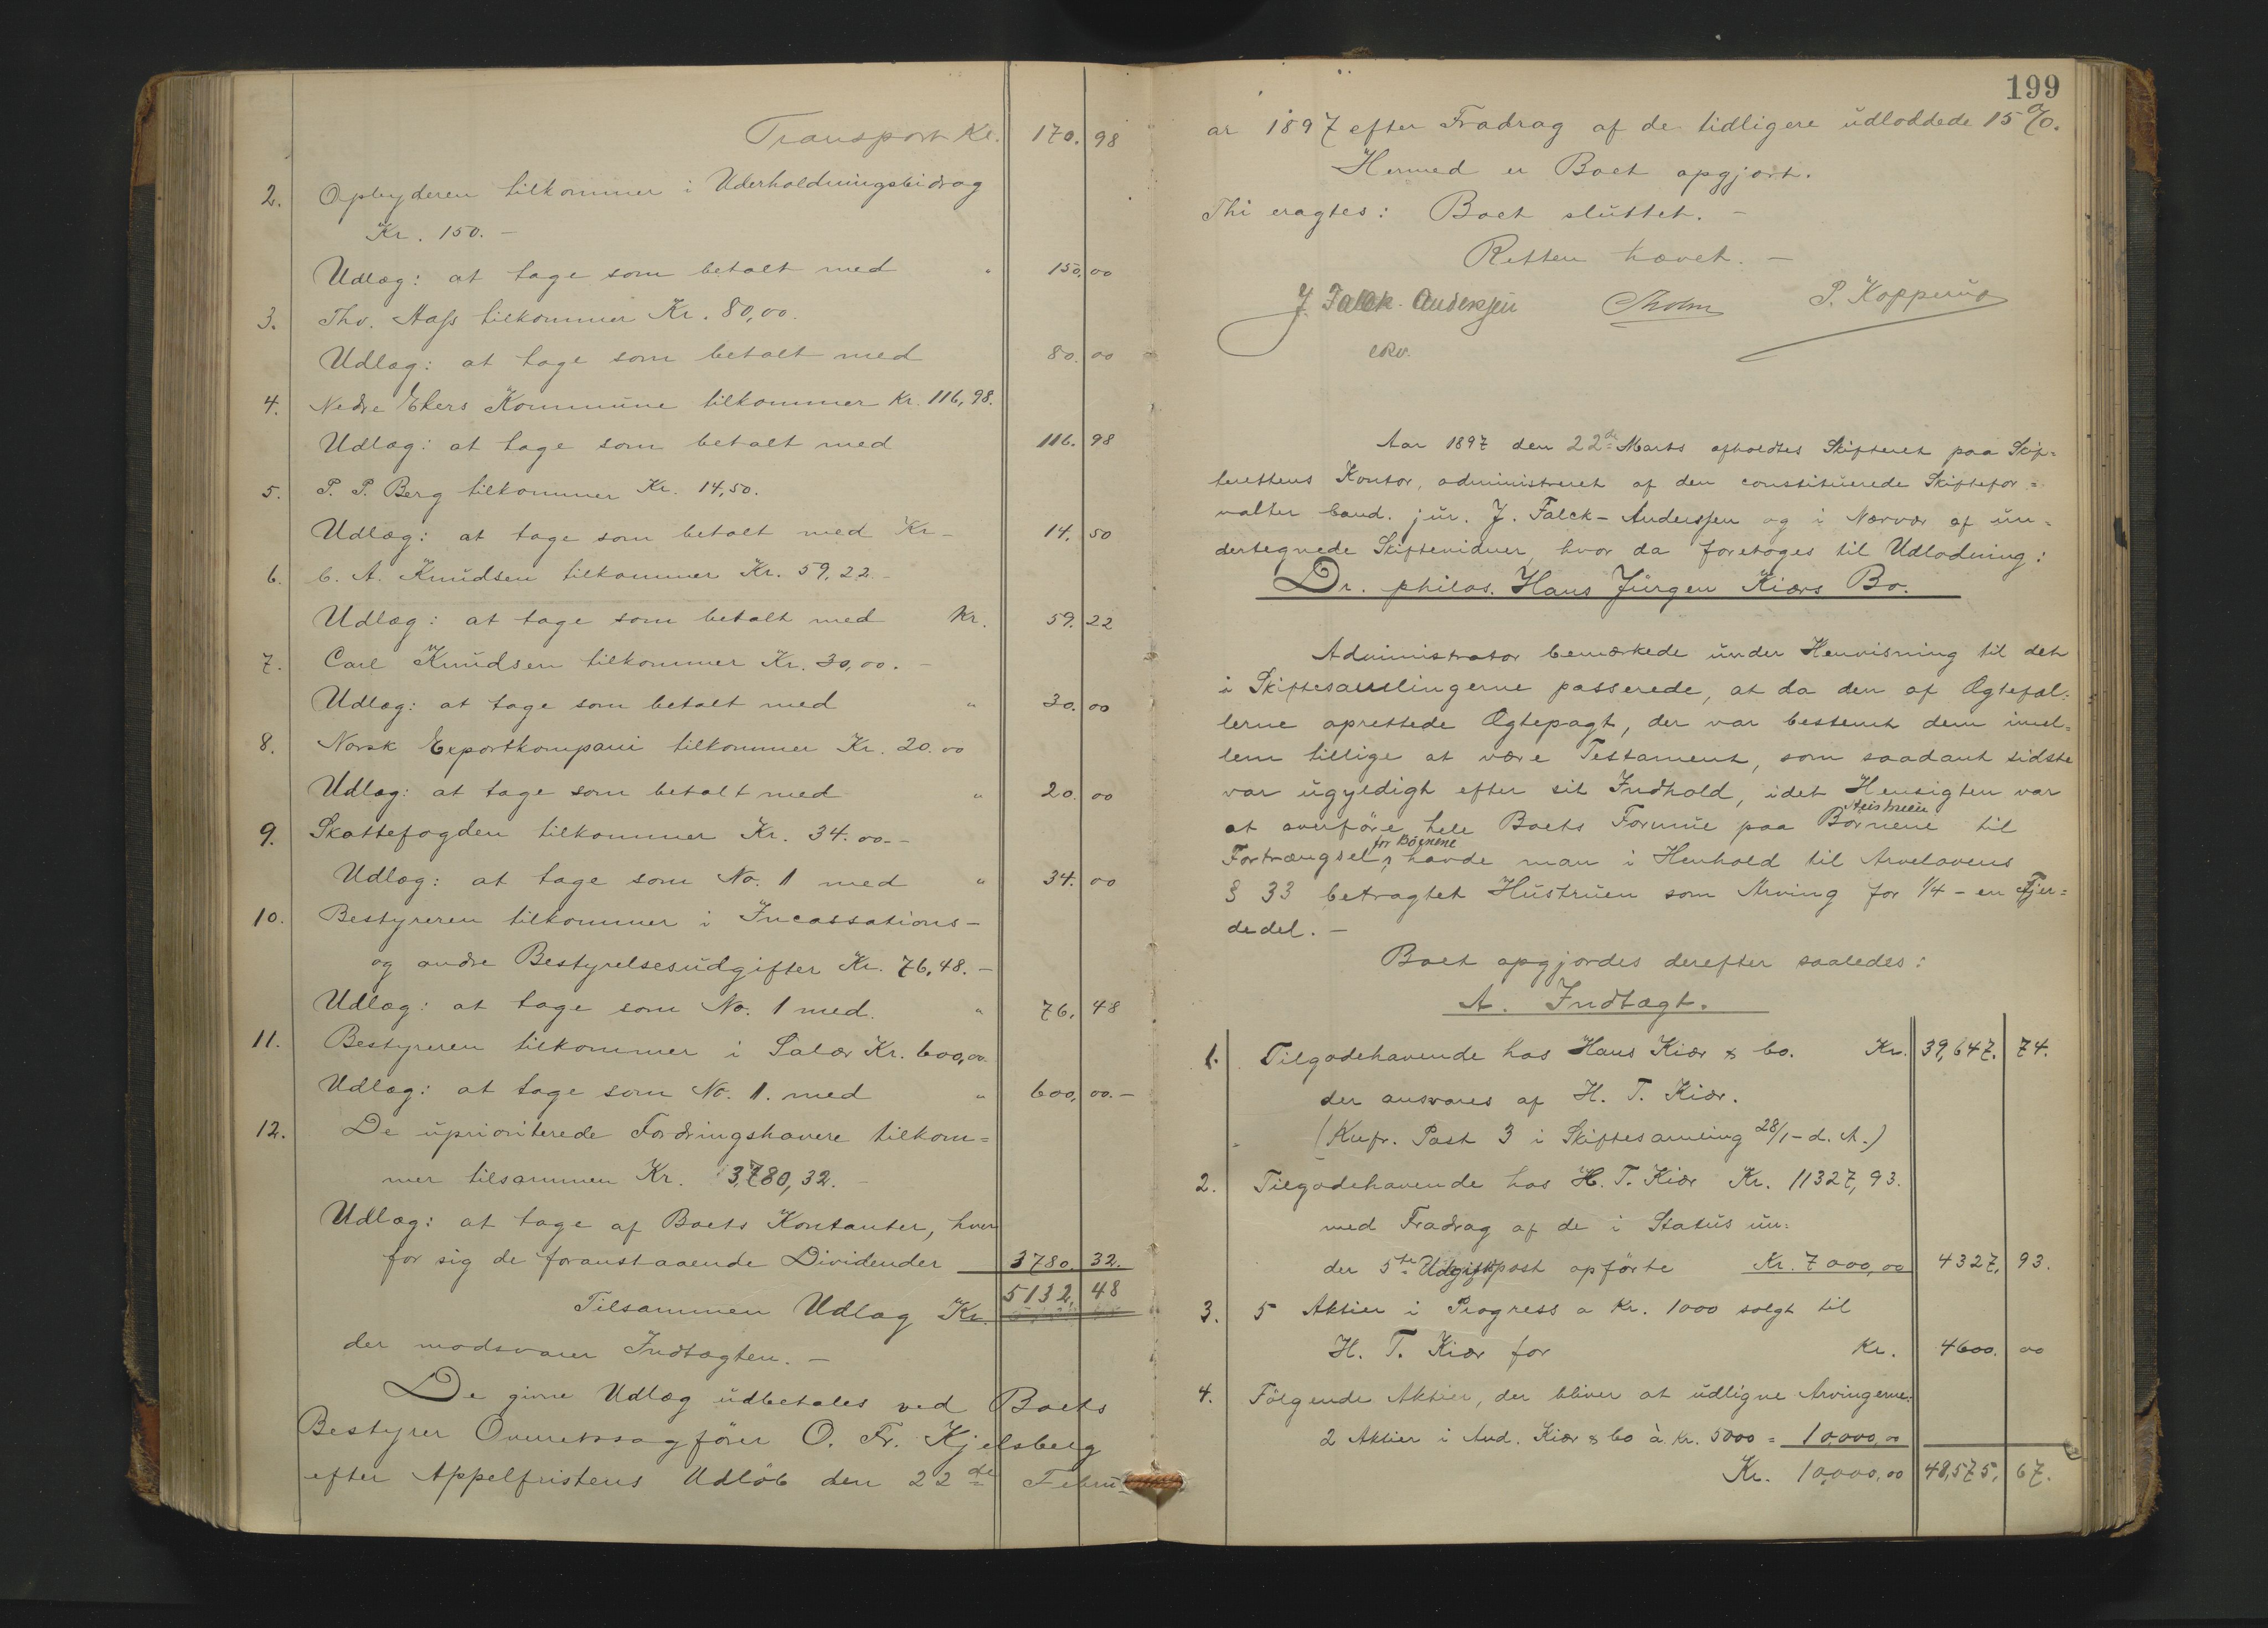 Transport Kr. 170. 98
2. Opbyderen tilkommer i Underholdningsbidrag
Kr. 150. –
Udlæg: at tage som betalt med " 150,00
3. Thv. Aass tilkommer Kr. 80,00.
Udlæg: at tage som betalt med 80. 00
4. Nedre Ekers Kommune tilkommer Kr. 116,98.
Udlæg: at tage som betalt med 116. 98
5. P. P. Berg tilkommer Kr. 14,50.
Udlæg: at tage som betalt med Kr – 14. 50
6. C. A. Knudsen tilkommer Kr. 59,22. –
Udlæg: at tage som betalt med Kr. 59. 22
7. Carl Knudsen tilkommer Kr. 30,00. –
Udlæg: at tage som betalt med " 30. 00
8. Norsk Exportkompani tilkommer Kr. 20.00
Udlæg: at tage som betalt med " 20. 00
9. Skattefogden tilkommer Kr. 34.00. –
Udlæg: at tage som No. 1 med " 34. 00
10. Bestyreren tilkommer i Incassations-
og andre Bestyrelsesudgifter Kr. 76,48. –
Udlæg: at tage som No. 1 med. " 76, 48
11. Bestyreren tilkommer i Salær Kr. 600,00
Udlæg: at tage som No. 1. med " 600, 00. –
12. De uprioriterede Fordringshavere tilkom=
mer tilsammen Kr. 3,780,32. –
Udlæg: at tage af Boets Kontanter, hver
for sig de foranstaaende Dividender 3780. 32.
Tilsammen Udlæg Kr. 5132, 48
der modsvarer Indtægten. –
De givne Udlæg udbetales ved Boets
Bestyrer Overretssagfører O. Fr. Kjelsberg
efter Appelfristens Udløb den 22de Febru
199
ar 1897 efter Fradrag af de tidligere udloddede 15 %.
Hermed er Boet opgjort.
Thi eragtes: Boet sluttet. –
Retten hævet. –
J. Falck-Anderssen Tholm P. Kopperud
cRv.
Aar 1897 den 22de Marts afholdtes Skifteret paa Skif=
terettens Kontor, administreret af den constituerede Skiftefor=
valter Cand. jur. J. Falck-Anderssen og i Nærvær af un=
dertegnede Skiftevidner, hvor da foretoges til Udlodning:
Dr. philos. Hans Jürgen Kiærs Bo.
Administrator bemærkede under Henvisning til det
i Skiftesamlingerne passerede, at da den af Ægtefæl=
lerne oprettede Ægtepagt, der var bestemt dem imel=
lem tillige at være Testament, som saadant sidste
var ugyldigt efter sit Indhold, idet Hensigten var
Hustruen
at overføre hele Boets Formue paa Børnene til
for Børnene
Fortrængsel, havde man i Henhold til Arvelovens
§ 33 betragtet Hustruen som Arving for 1/4 - en Fjer=
dedel. –
Boet opgjordes derefter saaledes:
A. Indtægt.
1. Tilgodehavende hos Hans Kiær & Co. Kr. 39,647. 74.
der ansvares af H. T. Kiær.
(Knfr. Post 3 i Skiftesamling 28/1 - d. A.)
2. Tilgodehavende hos H. T. Kiær Kr. 11327,93.
med Fradrag af de i Status un=
der 5te Udgiftpost opførte Kr. 7000,00 4327, 93.
3. 5 Aktier i Progress a Kr. 1000 solgt til
H. T. Kiær for Kr. 4600. 00
4. Følgende Aktier, der bliver at udligne Arvingerne:
2 Aktier i And. Kiær & Co à Kr. 5000 = 10,000,00
Kr. 10,000,00 48,575, 67.